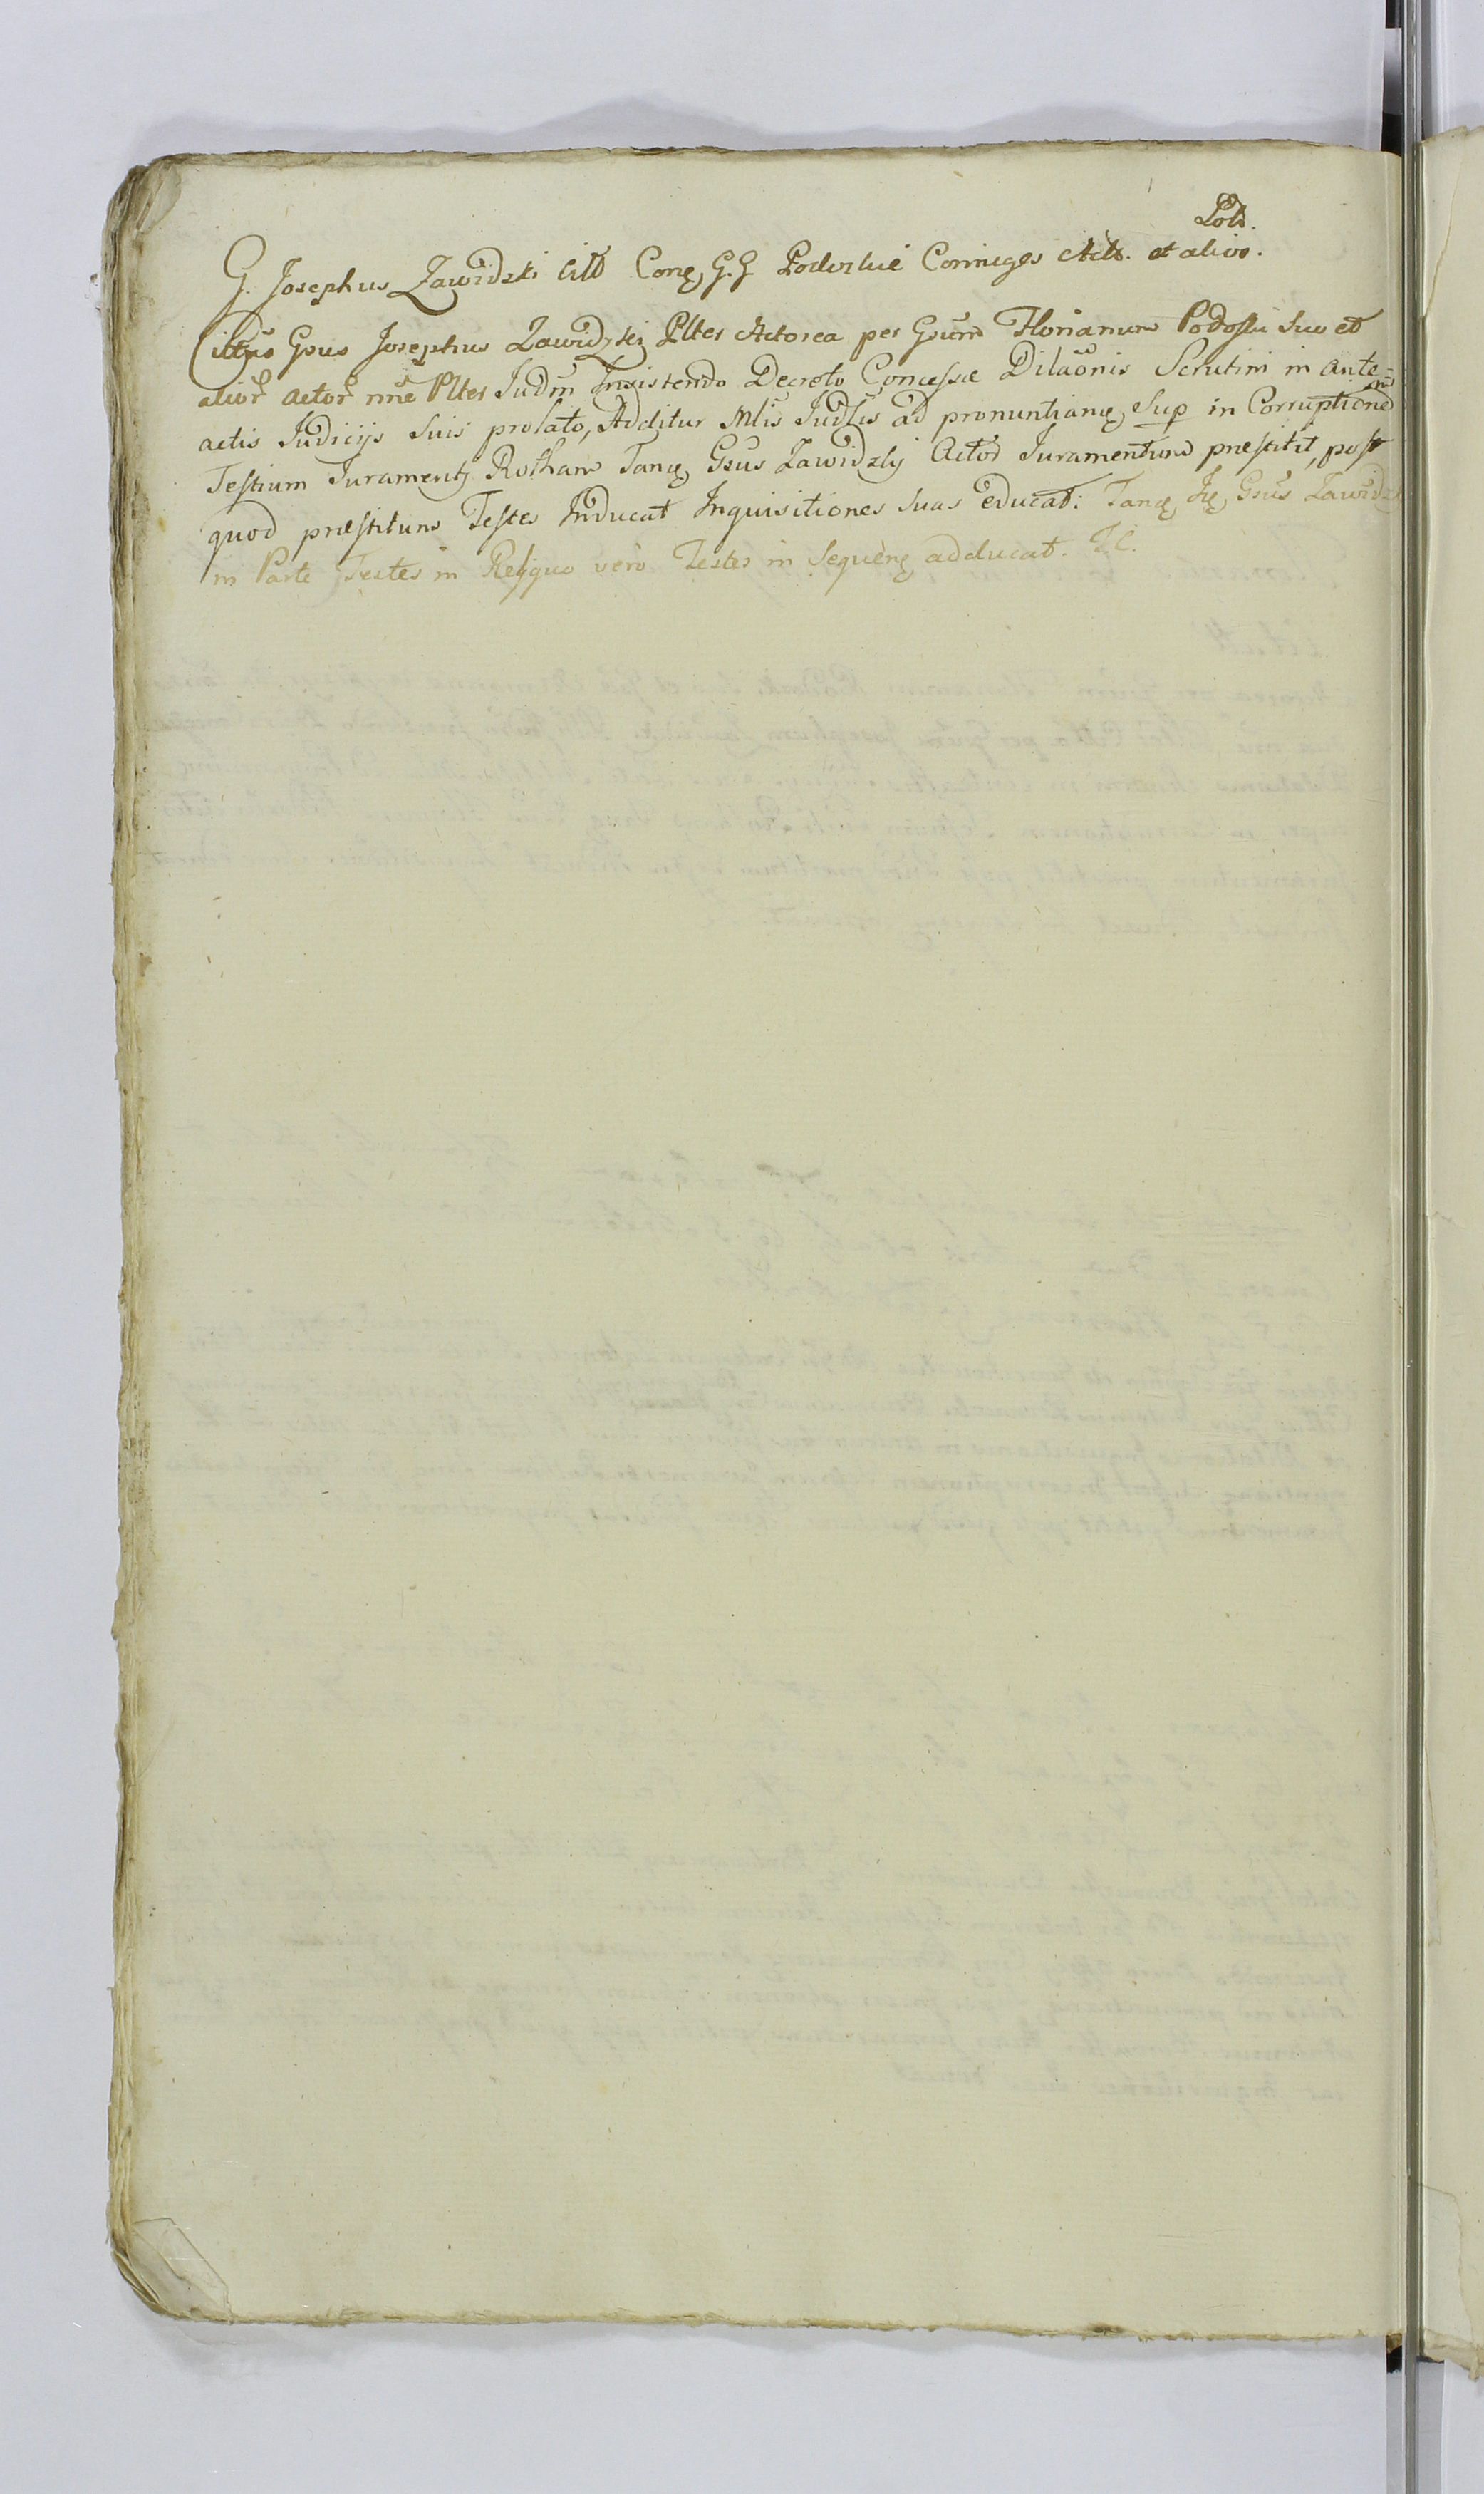 Pols.
G. Josephus Zawidzki Citt Conę G.G. Podoskie Coniuges Act. et alios.
Cittus Gsus Josephus Zawidzki Pltes Actorea per Gsum Florianum Podoski suo et
alior actor nne Pltes Judm Insistendo Decreto Concessæ Dilaonis Scrutini in ante=
actis Judicijs suis prolato, Additur Mlis Judlis ad pronuntianę sup in Corruptionem
Testium Juramenti Rotham Tanę Gsus Zawidzky Actor Juramentum præstitit, post
quod præstitum Testes Inducat Inquisitiones suas educat: Tanę Gsus Zawidz
in Parte Testes in Reliquo verò Testes in sequenę adducat.